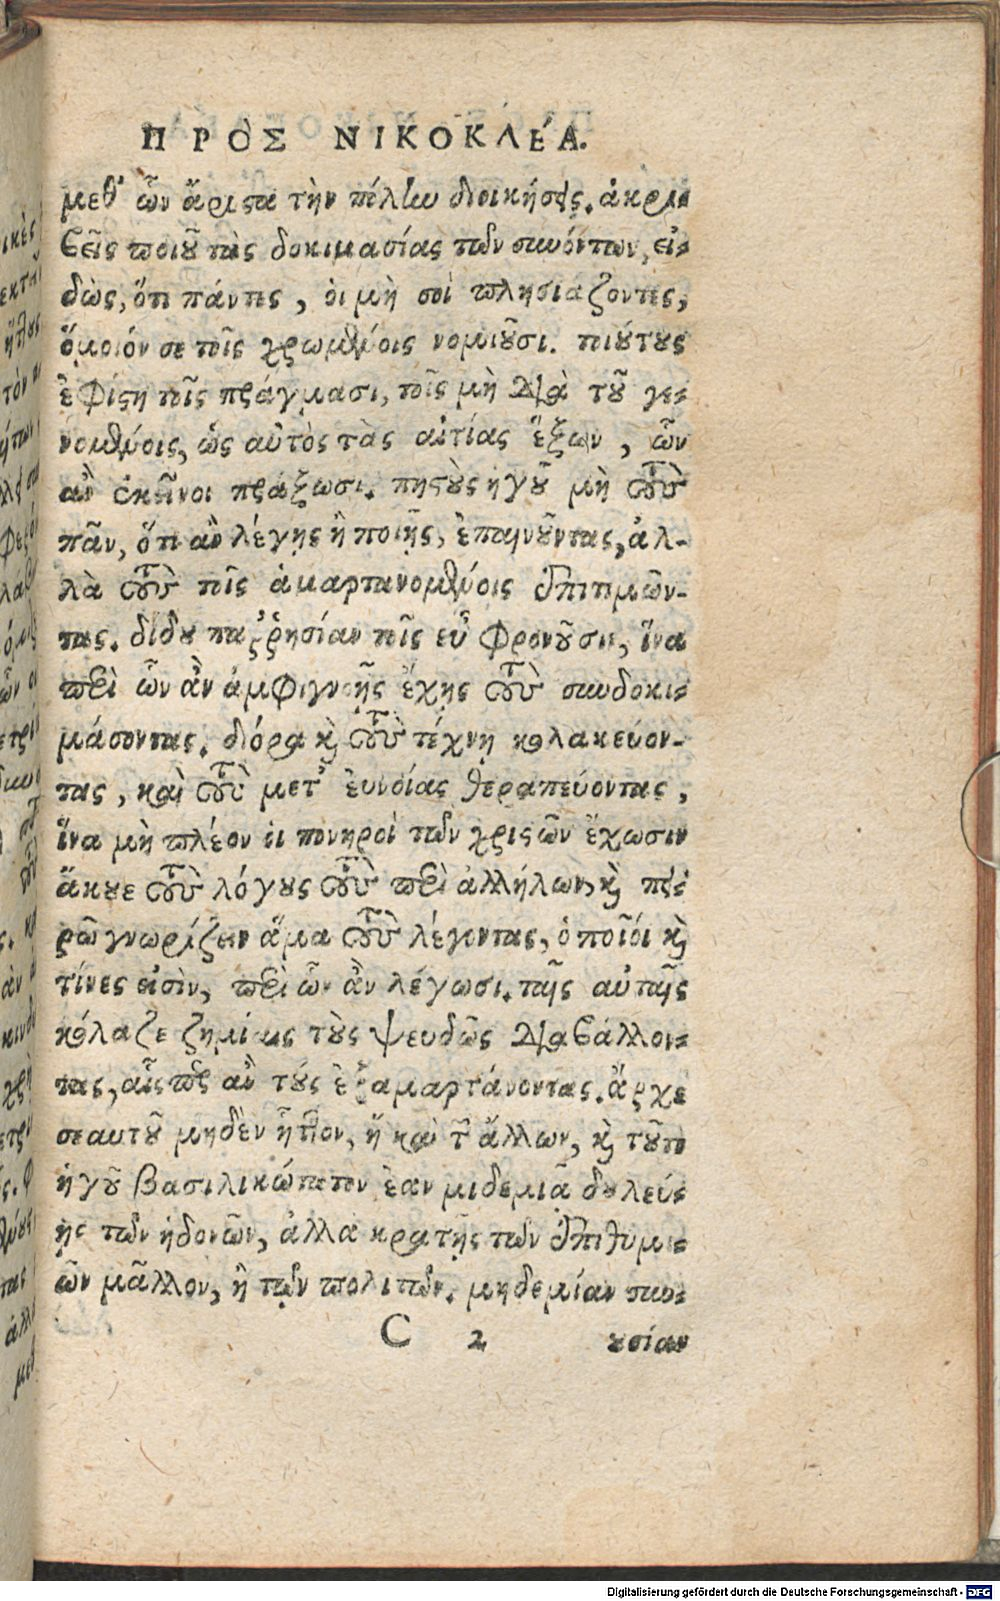 ΠΡΟΣ ΝΙΚΟΚΛΕΆ.
μεθ' ὧν ἄριστα τὴν πόλιν διοικήσεις. ἀκρι-
βεῖς ποιοῦ τὰς δοκιμασίας τῶν συνόντων, εἰ-
δὼς, ὅτι πάντες, οἱ μὴ σοὶ πλησιάζοντες,
ὅμοιόν σε τοῖς χρωμένοις νομιοῦσι. τοιούτους
ἐφίστη τοῖς πράγμασι, τοῖς μὴ διὰ τοῦ γε-
νομένοις, ὡς αὐτὸς τὰς αἰτίας ἕξων, ὧν
ἂν ἐκεῖνοι πράξωσι. πιστοὺς ἡγοῦ μὴ τοὺς
πᾶν, ὅτι ἂν λέγῃς ἢ ποιῇς, ἐπαινοῦντας, ἀλ-
λὰ τοὺς τοῖς ἁμαρτανομένοις ἐπιτιμῶν-
τας. δίδου παῤῥησίαν τοῖς εὖ φρονοῦσιν, ἵνα
περὶ ὧν ἂν ἀμφιγνοῇς ἔχῃς τοὺς συνδοκι-
μάσοντας. διόρα καὶ τοὺς τέχνῃ κολακεύον-
τας, καὶ τοὺς μετ' ἐυνοίας θεραπεύοντας,
ἵνα μὴ πλέον οἱ πονηροὶ τῶν χρηστῶν ἔχωσιν
ἄκουε τοὺς λόγους τοὺς περὶ ἀλλήλων, καὶ πει
ρῶ γνωρίζειν ἅμα τοὺς λέγοντας, ὁποῖοί καὶ
τίνες εἰσὶν, περὶ ὧν ἂν λέγωσι. ταῖς αὐταῖς
κόλαζε ζημίαις τοὺς ψευδῶς διαβάλλον-
τας, αἷς περ ἂν τούς ἐξαμαρτάνοντας. ἄρχε
σεαυτοῦ μηδὲν ἧττον, ἢ καὶ τῶν ἄλλων, καὶ τοῦτο
ἡγοῦ βασιλικώτατον ἐαν μιδεμιᾶ δουλεύ-
ῃς τῶν ἡδονῶν, ἀλλὰ κρατῇς τῶν ἐπιθυμι-
ῶν μᾶλλον, ἢ τῶν πολιτῶν. μηδεμίαν συν-
C 2 ουσίαν
Digitalisierung gefördert durch die Deutsche Forschungsgemeinschaft - DFG